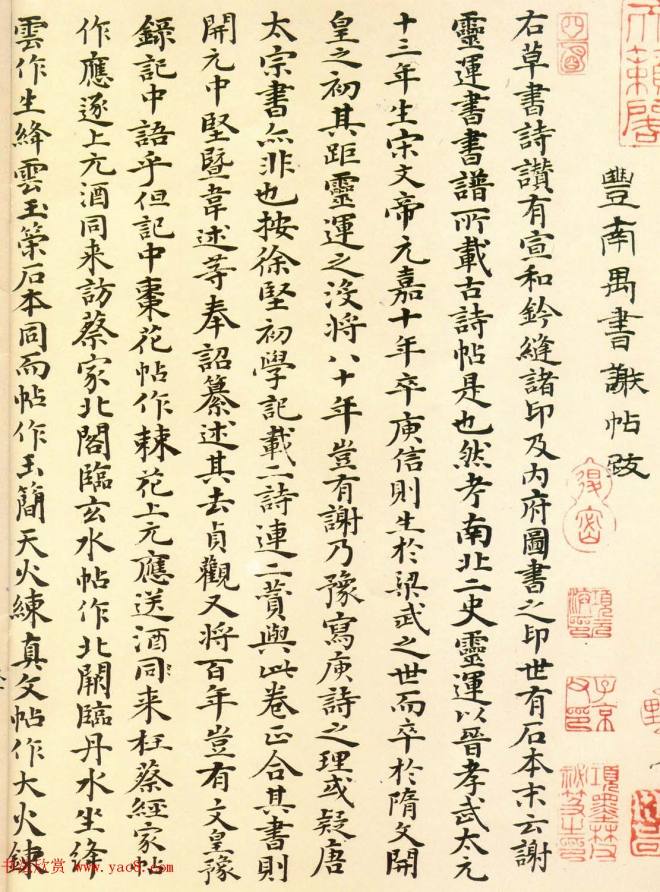 豐南禺書謝帖跋
右草書詩讚有宣和鈐縫諸印及內府圖書之印世有石本末云謝
靈運書書譜所載古詩帖是也然考南北二史靈運以晉孝武太元
十三年生宋文帝元嘉十年卒庾信則生於梁武之世而卒於隋文開
皇之初其距靈運之沒將八十年豈有謝乃豫寫庾詩之理或疑唐
太宗書亦非也按徐堅初學記載二詩連二贊與此卷正合其書則
開元中堅暨韋述等奉詔纂述其去貞觀又將百年豈有文皇豫
錄記中語乎但記中棗花帖作棘花上元應送酒同来在蔡經家帖
作應逐上元酒同来訪蔡家北閣臨玄水帖作北闕臨丹水坐絳
雲作生絳雲玉策石本同而帖作玉簡天火練真文帖作大火練
天籟閣
項墨林
子京
书法欣赏 www.yac8.com